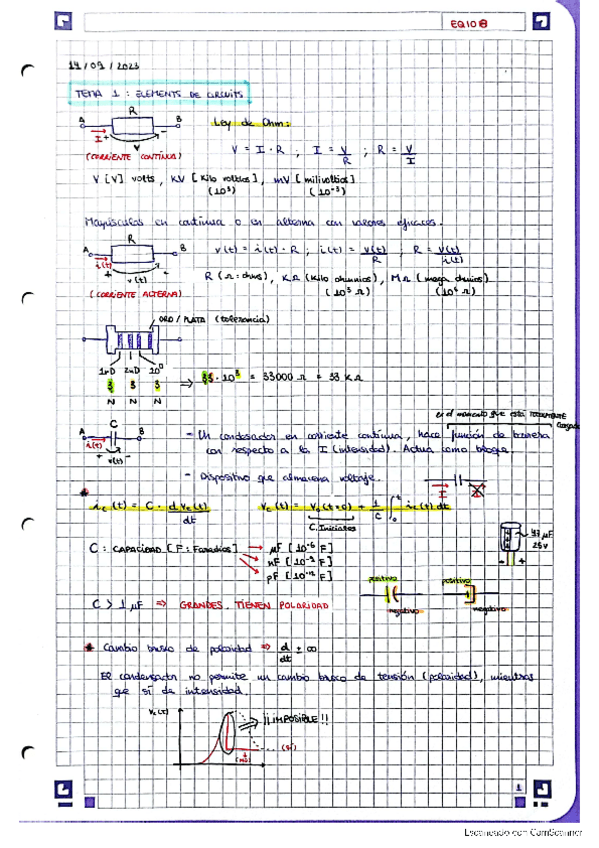 EQ108
14/09/2023
TEMA 1: ELEMENTS DE CIRCUITS
R
A B
I + V -
(CORRIENTE CONTINUA)
Ley de Ohm:
V = I · R ; I = V/R ; R = V/I
V [V] volts, KV [Kilo voltios], mV [milivoltios]
(10³) (10⁻³)
Mayúsculas en continua o en alterna con valores eficaces.
R
A B
i(t) + v(t) -
(CORRIENTE ALTERNA)
v(t) = i(t) · R ; i(t) = v(t)/R ; R = v(t)/i(t)
R (Ω: ohms), KΩ (Kilo ohmnios), MΩ (mega ohmios)
(10³ Ω) (10⁶ Ω)
ORO/PLATA (tolerancia)
1rD 2nD 10⁰
3 3 3
N N N
⇒ 33 · 10³ = 33000 Ω = 33 KΩ
C
A B
i(t) + v(t) -
es el momento que está TOTALMENTE cargado
- Un condensador en corriente continua, hace función de barrera
con respecto a la I (intensidad). Actúa como bloque.
- Dispositivo que almacena voltaje.
I
* ic(t) = C · d vc(t)/dt vc(t) = Vo(t=0) + 1/C ∫₀ᵗ ic(t) dt
C. Iniciales
C: CAPACIDAD [F: Faradios] → μF [10⁻⁶ F]
nF [10⁻⁹ F]
pF [10⁻¹² F]
47 μF
25V
- +
positivo positivo
negativo negativo
C > 1 μF ⇒ GRANDES. TIENEN POLARIDAD
* Cambio brusco de polaridad ⇒ d/dt = ∞
El condensador no permite un cambio brusco de tensión (polaridad), mientras
que sí de intensidad.
Vc(t)
¡¡IMPOSIBLE!!
(SÍ)
(NO)
t
1
Escaneado con CamScanner